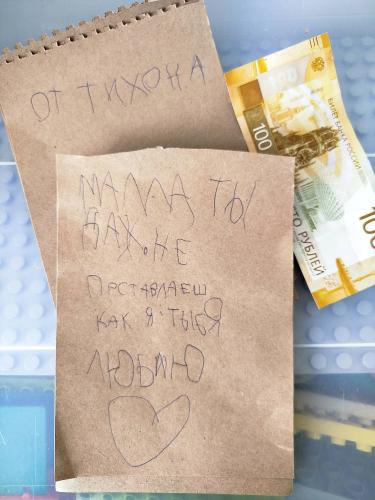 ОТ ТИХОНА
МАМА, ТЫ
ДАЖ.НЕ
ПРСТАВЛАЕШ
КАК Я ТЫБЯ
ЛЮБЛЮ
100
БИЛЕТ БАНКА РОССИИ
100
ТО РУБЛЕЙ
100